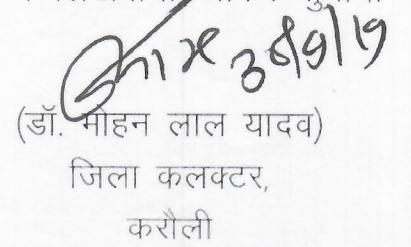 30/9/19
(डॉ. मोहन लाल यादव)
जिला कलक्टर,
करौली